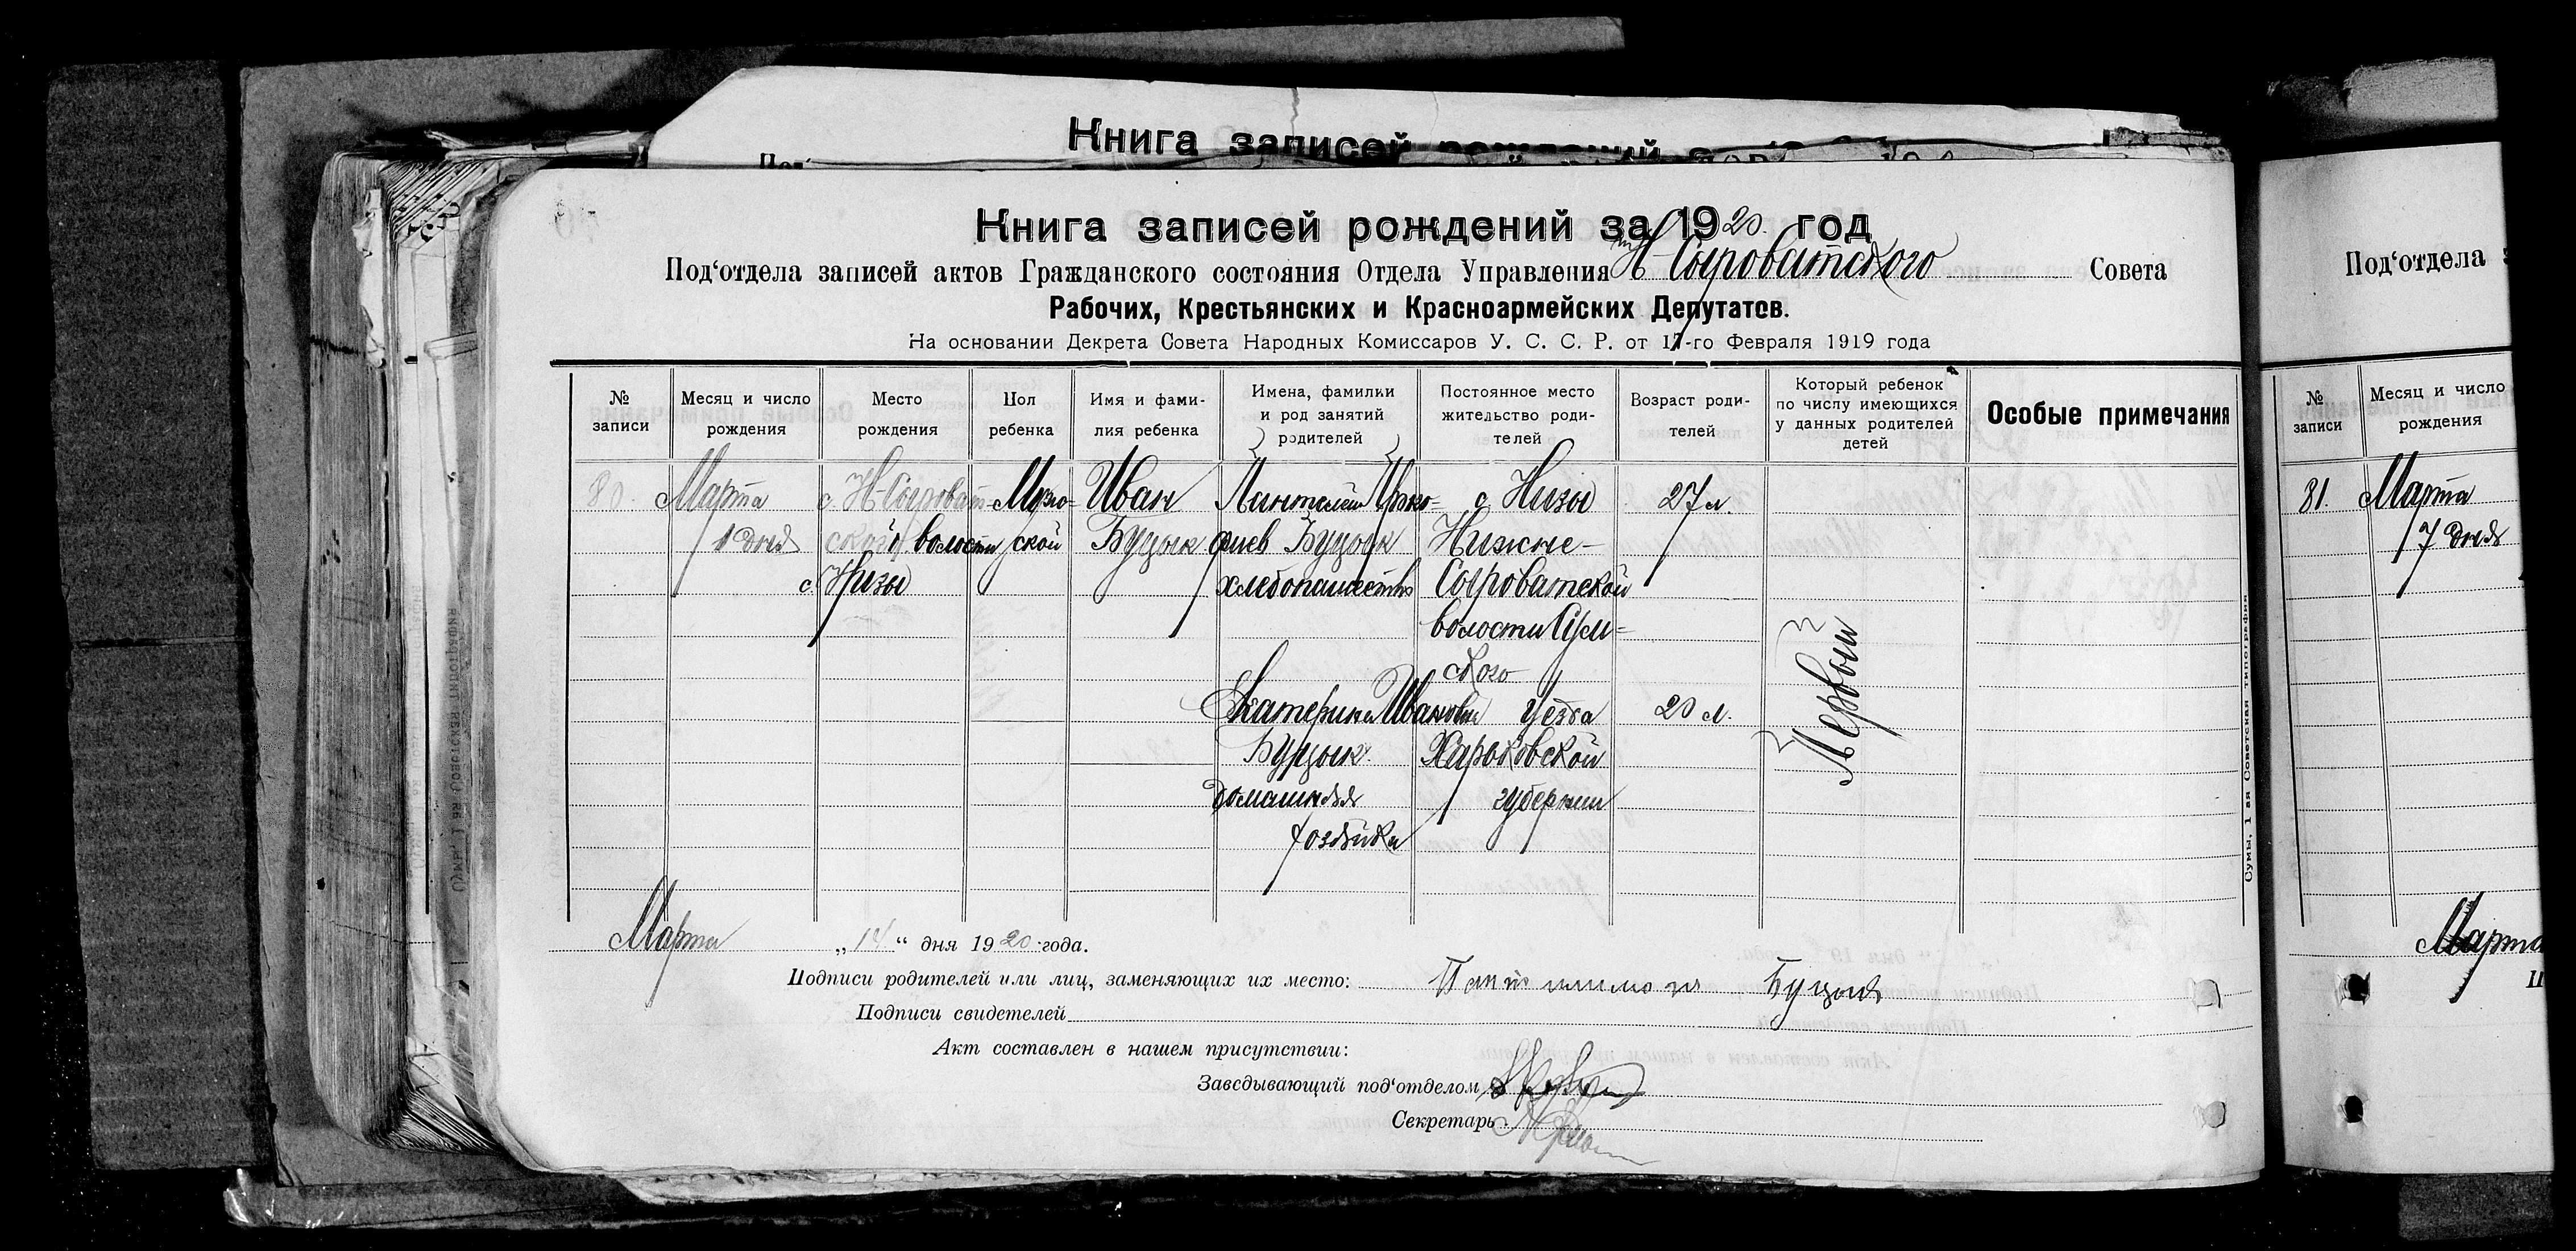 Книга записей
Книга записей рождений за 1920 год
Под‘отдела записей актов Гражданского состояния Отдела Управления Н-Сыроватского Совета
Рабочих, Крестьянских и Красноармейских Депутатов.
На основании Декрета Совета Народных Комиссаров У. С. С. Р. от 17-го Февраля 1919 года
№ записи
Месяц и число рождения
Место рождения
Пол ребенка
Имя и фами-лия ребенка
Имена, фамилии и род занятий родителей
Постоянное место жительство роди-телей
Возраст роди-телей
Который ребенок по числу имеющихся у данных родителей детей
Особые примечания
80.
Марта
1 дня
с. Н-Сыроват-
ской волости
с. Низы
Муж-
ской
Иван
Буцык
Пантелей
фиев Буцык
хлебопашество
Екатерина Ивановна
Буцык.
домашняя
хозяйка
с Низы
Нижне-
Сыроватской
волости Сум-
ского
Уезда
Харьковской
губернии
27 л.
20 л.
Первый
Марта „14“ дня 1920 года.
Подписи родителей или лиц, заменяющих их место: Буцык
Подписи свидетелей
Акт составлен в нашем присутствии:
Заведывающий под‘отделом
Секретарь
Сумы, 1-ая Советская типография
Под‘отдела
№ записи
Месяц и число рождения
81.
Марта
7 дня
Марта